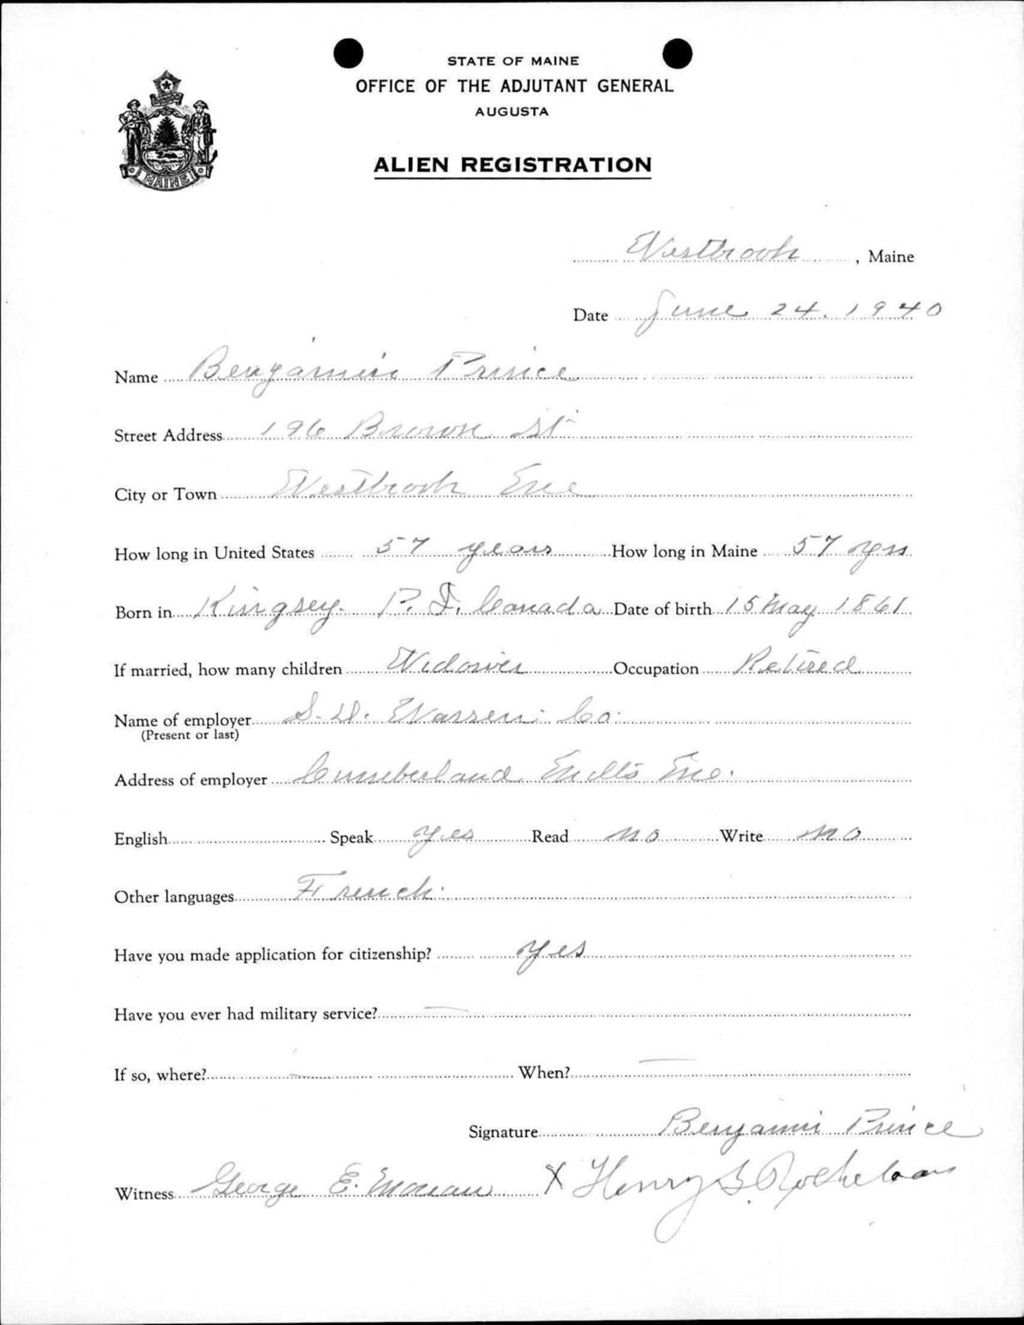 STATE OF MAINE
OFFICE OF THE ADJUTANT GENERAL
AUGUSTA
ALIEN REGISTRATION
MAINE
Westbrook, Maine
Date June 24, 1940
Name Benjamin Prince
Street Address 196 Brown St
City or Town Westbrook Me
How long in United States 57 years How long in Maine 57 yrs
Born in Kingsey P. Q. Canada Date of birth 15 May 1861
If married, how many children Widower Occupation Retired
Name of employer S. D. Warren Co.
(Present or last)
Address of employer Cumberland Mills Me.
English Speak yes Read no Write no
Other languages French
Have you made application for citizenship? yes
Have you ever had military service? —
If so, where? — When? —
Signature Benjamin Prince
Witness George E. Moreau X Henry